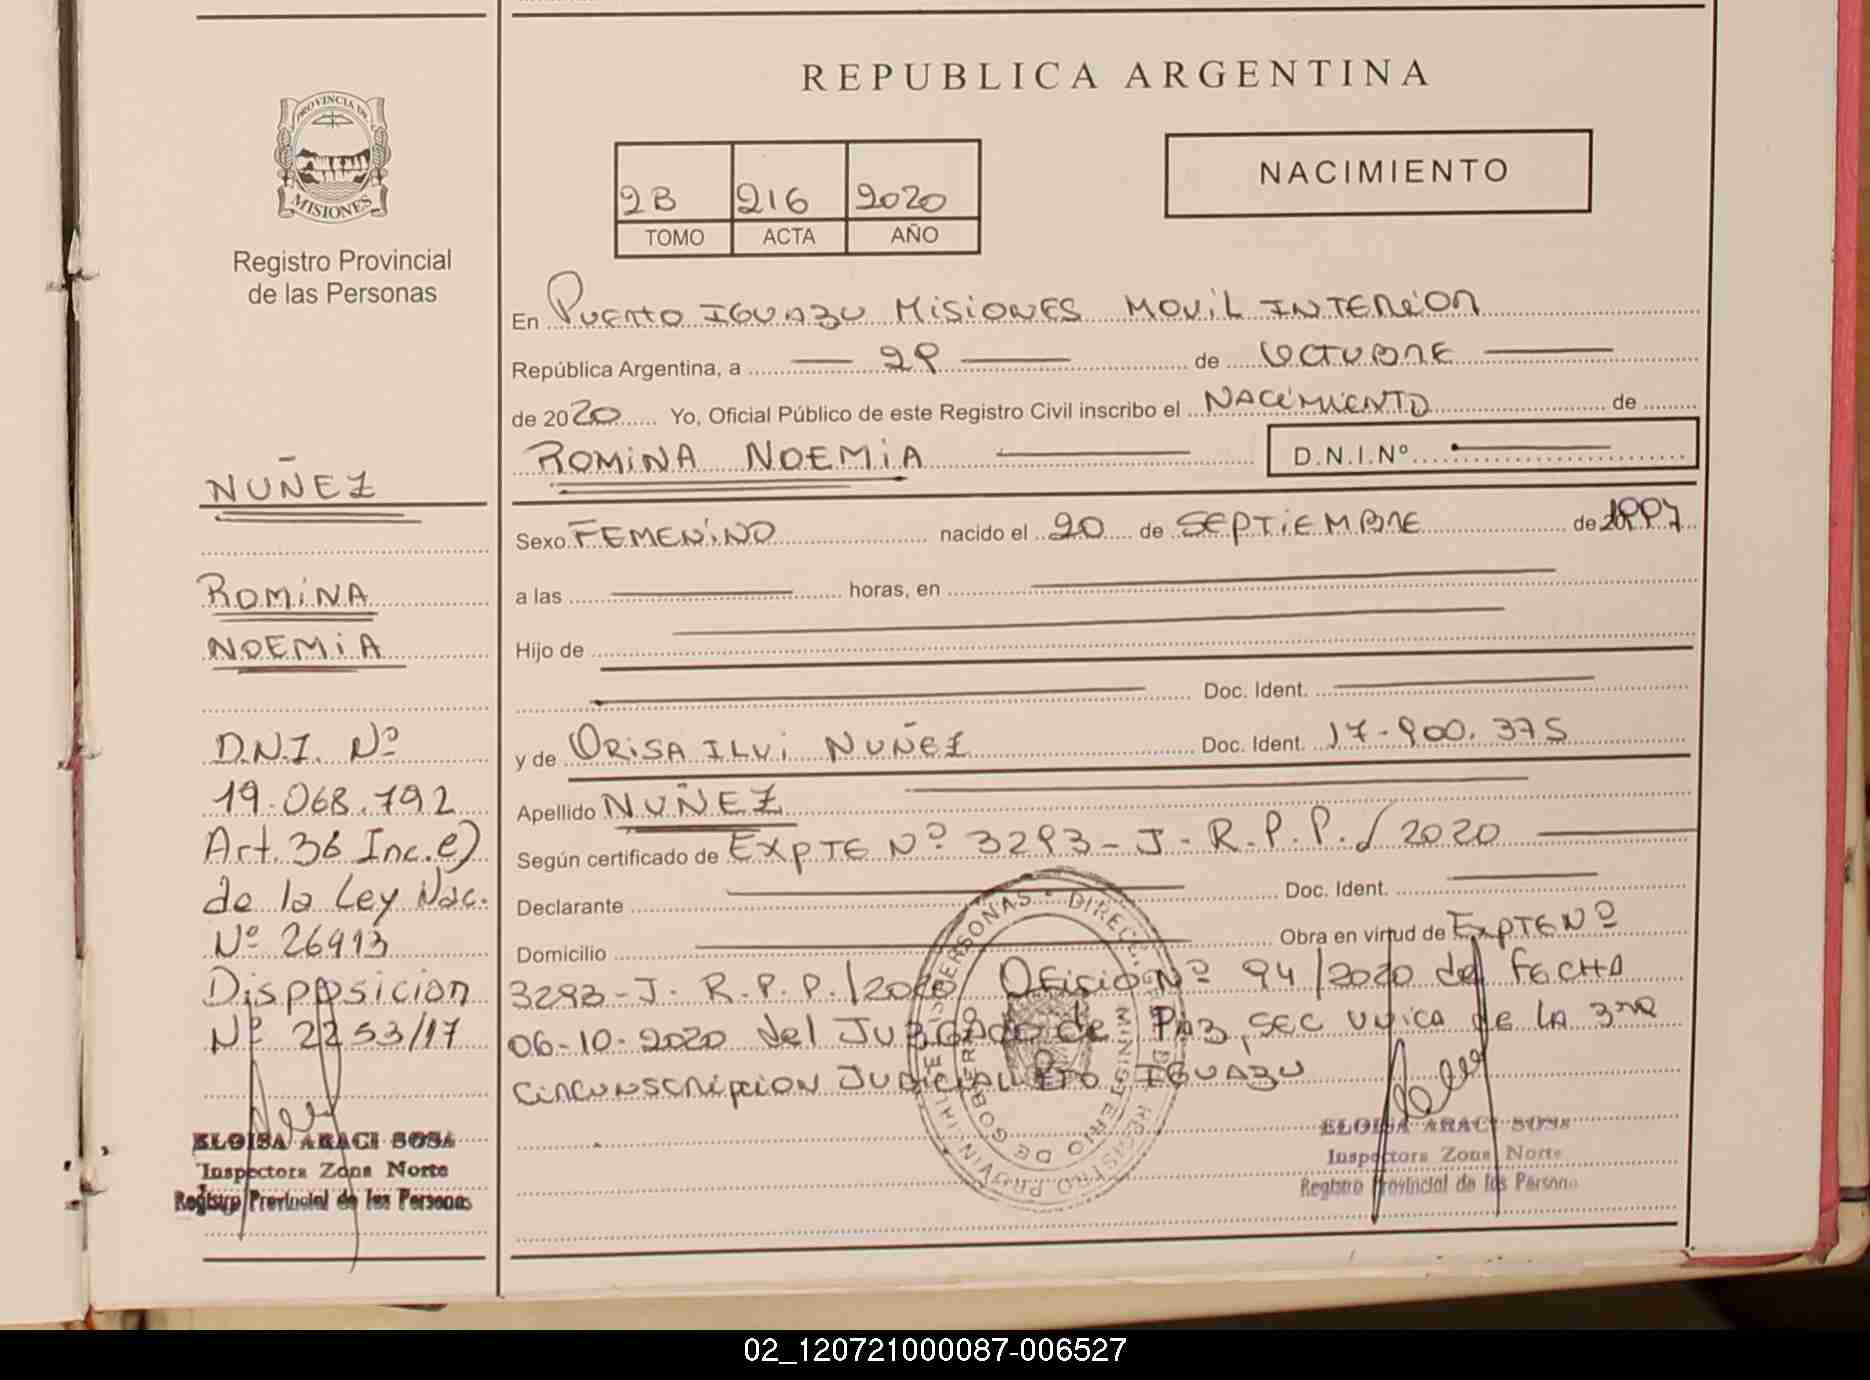 REPUBLICA ARGENTINA
NACIMIENTO
2B 216 2020
TOMO ACTA AÑO
PROVINCIA DE
MISIONES
Registro Provincial
de las Personas
En PUERTO IGUAZU MISIONES MOVIL INTERIOR
República Argentina, a 29 de OCTUBRE
de 2020 Yo, Oficial Público de este Registro Civil inscribo el NACIMIENTO de
ROMINA NOEMIA D.N.I.Nº
Sexo FEMENINO nacido el 20 de SEPTIEMBRE de 1997
a las horas, en
Hijo de
Doc. Ident.
y de ORISA ILVI NUÑEZ Doc. Ident. 17-900.375
Apellido NUÑEZ
Según certificado de EXPTE Nº 3293-J-R.P.P./2020
Declarante Doc. Ident.
Domicilio Obra en virtud de EXPTE Nº
3293-J-R.P.P./2020 OFICIO Nº 94/2020 de FECHA
06-10-2020 del JUZGADO de PAZ, SEC UNICA DE LA 3RA
CIRCUNSCRIPCION JUDICIAL PTO IGUAZU
NUÑEZ
ROMINA
NOEMIA
D.N.I. Nº
19.068.792
Art. 36 Inc. e)
de la Ley Nac.
Nº 26413
Disposicion
Nº 2253/17
ELOISA ARACI SOSA
Inspectora Zona Norte
Registro Provincial de las Personas
ELOISA ARACI SOSA
Inspectora Zona Norte
Registro Provincial de las Persona
MINISTERIO DE GOBIERNO
02_120721000087-006527